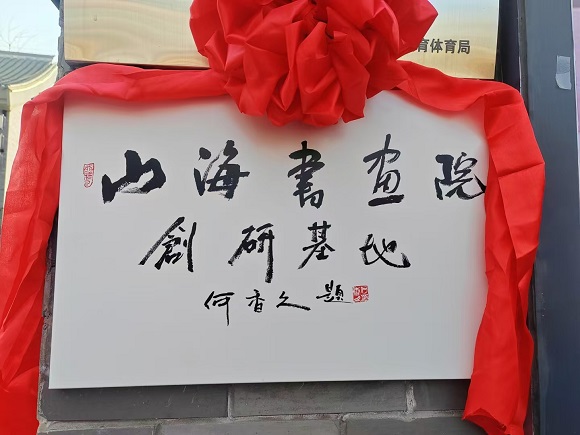 育体育局
山海書画院
創研基地
何香久題